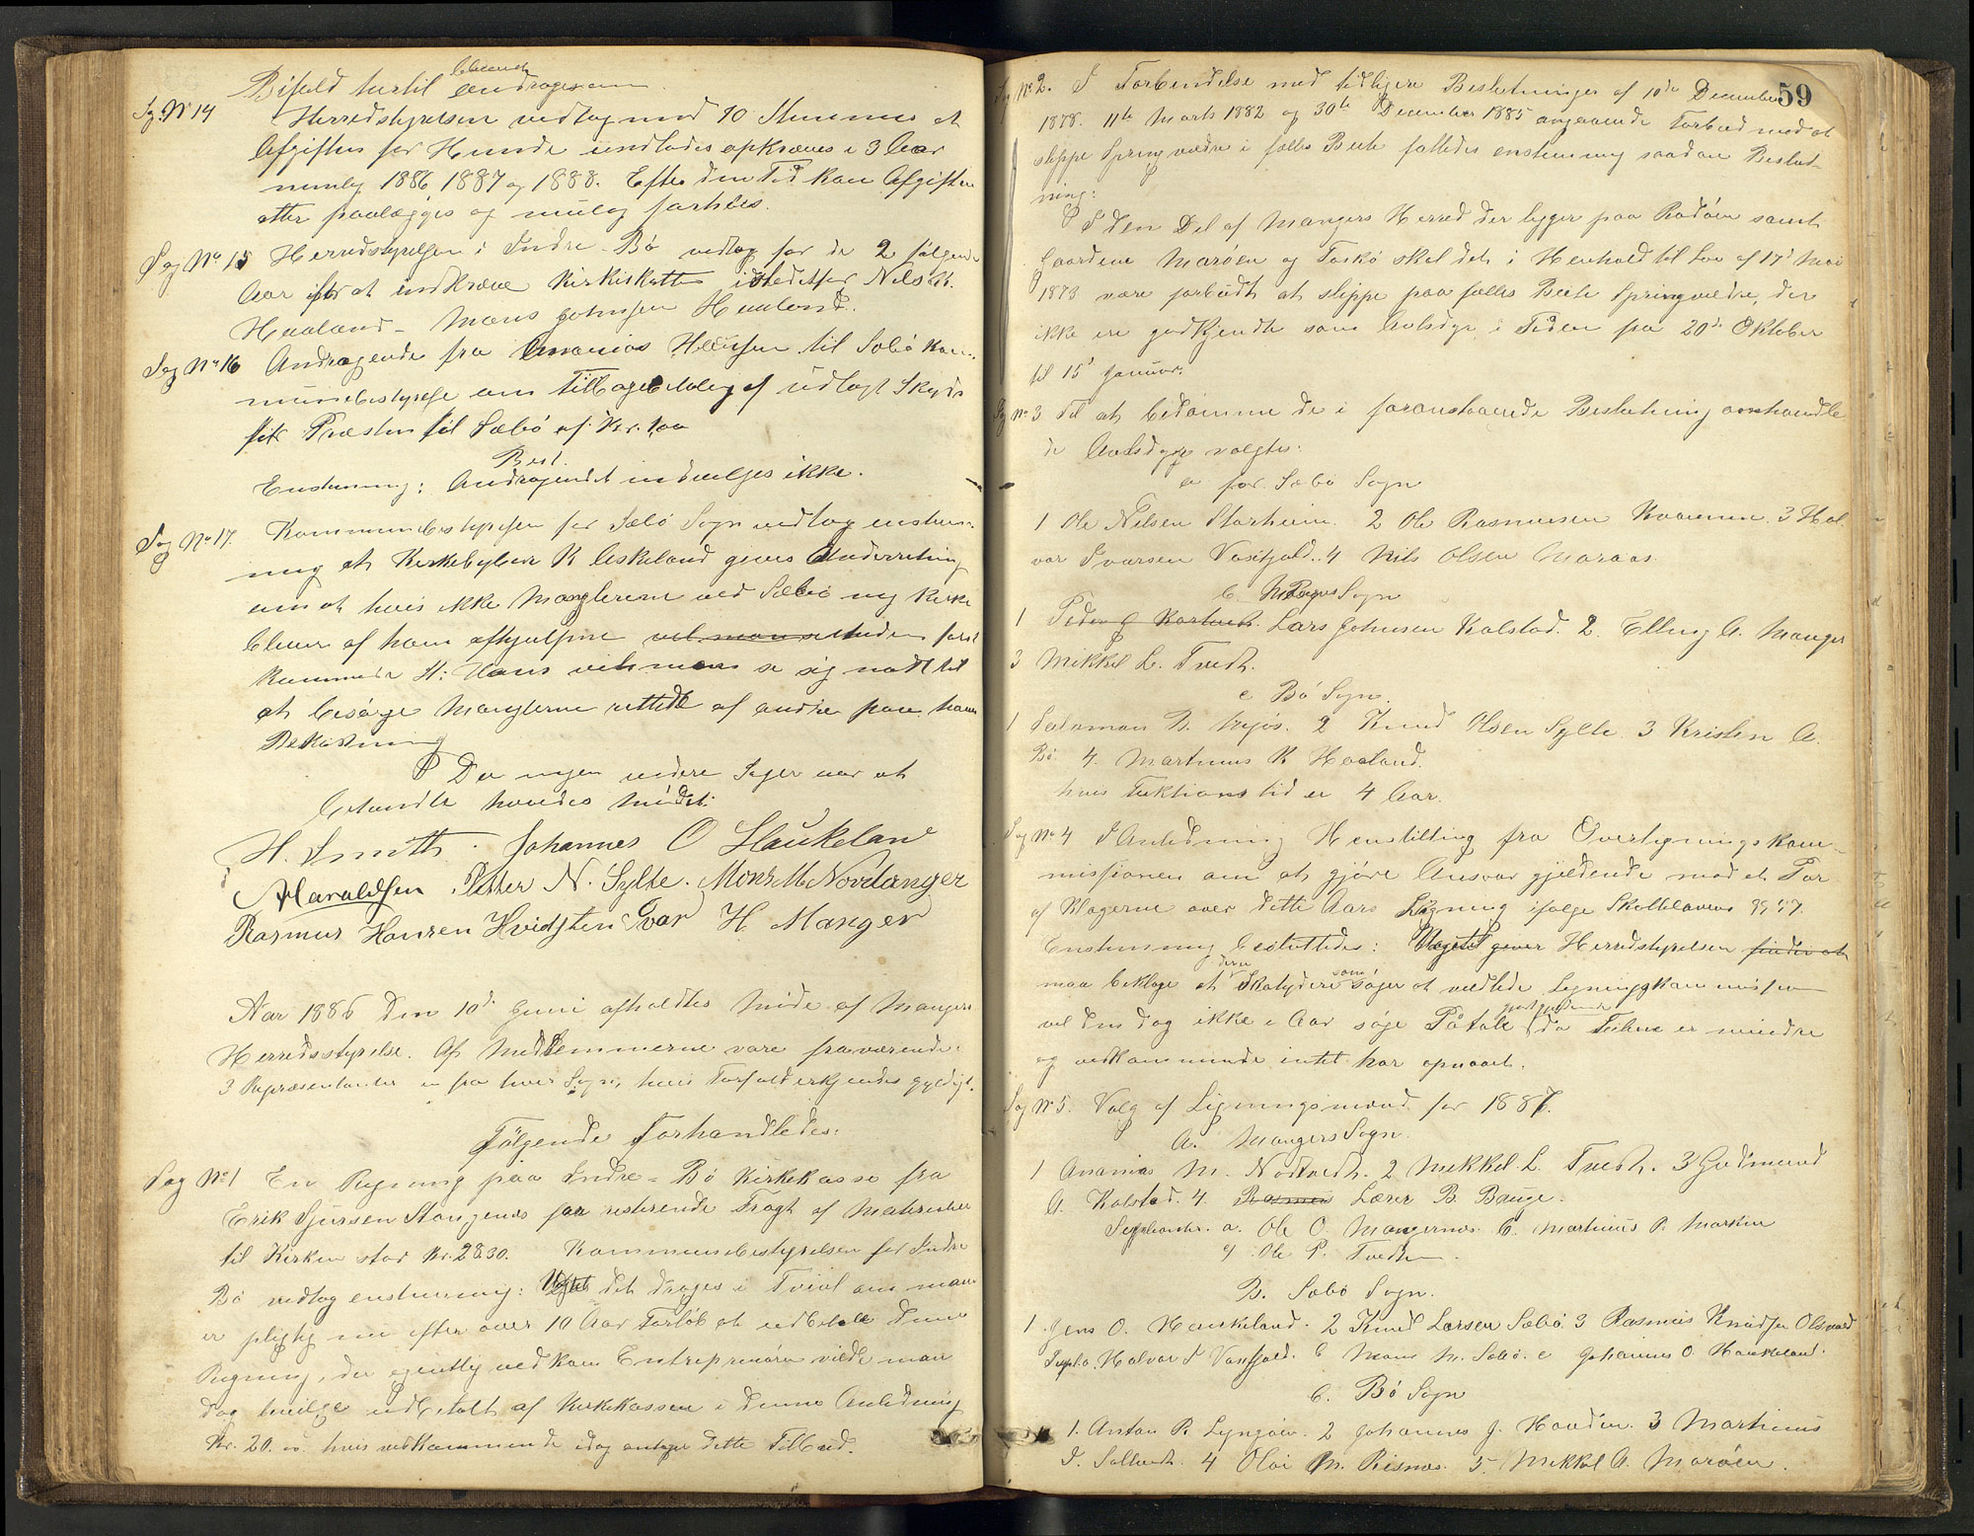 Bifald hertil andrages om
Sag No 14 Herredstyrelsen vedtog med 10 Stemmer at
Afgiften for Hunde undlades opkræves i 3 Aar
nemlig 1886 1887 og 1888. Efter den Tid kan Afgiften
atter paalægges og mulig forhøies.
Sag No 15 Herredstyrelsen i Indre Bø vedtog for de 2 følgende
Aar at indkræve Kirkeskatten istedetfor Nils
Haaland - Mons Johnsen Haaland.
Sag No 16 Andragende fra Ananias Helgesen til Sæbø Kom-
munebestyrelse om Tilbagebetaling af udlagt Skyds
for Præsten til Sæbø af Kr.
Best.
Enstemmig: Andragendet indvilges ikke.
Sag No 17. Kommunebestyrelsen for Sæbø Sogn vedtog enstem-
mig at Kirkebygger K Askeland gives Underretning
om at hvis ikke Manglerne ved Sæbø ny Kirke
bliver af ham afhjulpne inden først
kommende St: Hans vil man se sig nødt til
at besørge Manglerne rettede af andre paa hans
Bekostning
Da ingen videre Sager var at
behandle hævdes Mødet.
H. Smith. Johannes O Haukeland
A Haraldsen Peter N. Sylte. Mons M Nordanger
Rasmus Hansen Hvidsten Ivar H. Manger
Aar 1886 den 10de Juni afholdtes Møde af Mangers
Herredsstyrelse. Af Medlemmerne vare fraværende
3 Repræsentanter en fra hver Sogn, hvis Forfald erkjendes gyldigt.
Følgende forhandledes:
Sag No 1 En Regning paa Indre-Bø Kirkekasse fra
Erik Sjursen Stangenes for resterende Fragt af Materialier
til Kirken stor Kr. 28.30. Kommunebestyrelsen for Indre
Bø vedtog enstemmig: Uagtet det drages i Tvivl om man
er pligtig nu efter over 10 Aar Forløb at udbetale denne
Regning, der egentlig vedkom Entreprenøren vilde man
dog bevilge udbetalt af Kirkekassen i denne Anledning
Kr. 20.00 hvis vedkommende idag antager dette Tilbud.
59
Sag No 2. I Forbindelse med tidligere Beslutninger af 10de December
1878. 11te Marts 1882 og 30te December 1885 angaaende Forbud mod at
slippe Springvædre i fælles Beite fattedes enstemmig saadan Beslut-
ning:
I den Del af Mangers Herred der ligger paa Radøen samt
Gaardene Marøen og Toskø skal det i Henhold til Lov af 17de Mai
1873 være forbudt at slippe paa fælles Beite Springvædre, der
ikke ere godkjendte som Avlsdyr i Tiden fra 20de Oktober
til 15de Januar.
Sag No 3 Til at bedømme de i foranstaaende Beslutning omhandle-
de Avlsdyr valgtes:
a for Sæbø Sogn
1 Ole Nilsen Storheim. 2 Ole Rasmussen Kvamme. 3 Hal
vor Ivarsen Vaxfjæld. 4 Nils Olsen Maraas.
b. Mangers Sogn
1 Peder J Kartveit. Lars Johnsen Kolstad. 2. Elling A. Manger
3 Mikkel L. Tvedt.
c Bø Sogn.
1 Salamon R. 2 Knud Olsen Sylte 3 Kristen A.
Bø 4. Martinus K Haaland.
hvis Funktionstid er 4 Aar.
Sag No 4 I Anledning Henstilling fra Overligningskom-
missionen om at gjøre Ansvar gjældende mod et Par
af Klagerne over dette Aars Ligning ifølge Skatteloven
Enstemmig besluttedes: Uagtet Herredstyrelsen finder at
maa beklage at Skatydere søger at vildlede Ligningskommission
vil den dog ikke i Aar søge Påtale gjort gjældende da Tiden er mindre
og vedkommende intet har opnaaet.
Sag No 5. Valg af Ligningsmænd for 1887.
A. Mangers Sogn.
1 Ananias M. Nordtvedt. 2 Mikkel L. Tvedt. 3 Gudmund
A. Kolstad. 4 Rasmus Lærer B Bauge.
Suppleanter. a. Ole O. Mangernæs. b. Martinus P. Marken
c Ole P. Tvedten.
B. Sæbø Sogn.
1 Jens O. Haukeland. 2 Knud Larsen Sæbø 3 Rasmus Knudsen Olsvold
Supl. a. Halvor I Vaxfjæld. b Mons M. Sæbø. c Johannes O. Haukeland.
C. Bø Sogn
1. Anton R. Lyngøen. 2 Johannes J. Haaden. 3 Martinus
I. Sættvedt. 4 Olai M. Risnæs. 5. Mikkel A. Marøen.